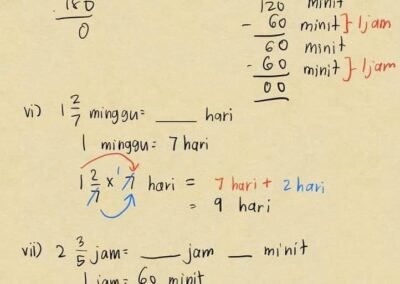 180
0
120 minit
- 60 minit } 1 jam
60 minit
- 60 minit } 1 jam
00
vi) 1 2/7 minggu = ____ hari
1 minggu = 7 hari
1 2/7 × 7 1 hari = 7 hari + 2 hari
= 9 hari
vii) 2 3/5 jam = ____ jam __ minit
1 jam = 60 minit